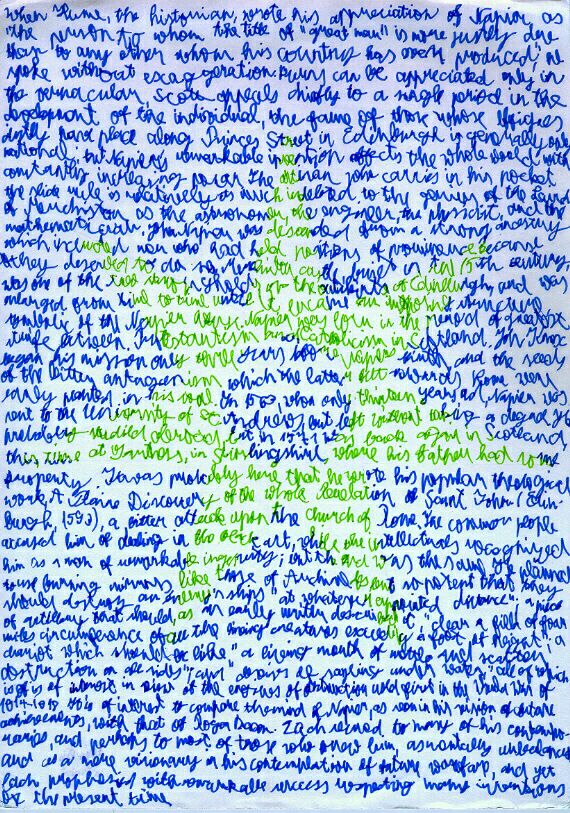 When Hume, the historian, wrote his appreciation of Napier, as
"the person to whom the title of "great man" is more justly due
than to any other whom his country has ever produced", he
spoke without exaggeration. Burns can be appreciated only in
the vernacular, Scott appeals chiefly to a single period in the
development of the individual, the fame of those whose effigies
duly have place along Princes Street in Edinburgh is generally only
national; but Napier's remarkable invention affects the whole world with
constantly increasing power. The man who carries in his pocket
the slide rule is relatively as much indebted to the genius of the Laird
of Merchiston as the astronomer, the engineer, the physicist, and the
mathematician. John Napier was descended from a strong ancestry
which included men who had held positions of prominence because
they deserved to do so. Merchiston castle in the 15th century,
was one of the of Edinburgh and was
enlarged from time to time until it became an imposing structure
symbolic of the Napier John Napier was born in the period of greatest
strife between Protestantism and Catholicism in Scotland. John Knox
began his mission only three years before Napier's birth, and the seed
of the bitter antagonism which the latter felt towards Rome were
early planted in his soul. In 1563, when only thirteen years old, Napier was
sent to the University of St. Andrews, but left without taking a degree. He
probably studied abroad, but in 1571 was back again in Scotland
this time at Gartness, in Stirlingshire where his father had some
property. It was probably here that he wrote his popular theological
work, A Plaine Discovery of the whole Revelation of Saint John (Edin-
burgh, 1593), a bitter attack upon the church of Rome. The common people
accused him of dealing in the black art, while the intellectuals recognized
him as a man of remarkable ingenuity;
to use burning mirrors like those of Archimedes so potent that they
should destroy an enemy's ships "at whatever appointed distance"; a piece
of artillery that should, as an early writer described it, "clear a field of four
miles circumference of all the living creatures exceeding a foot of height", a
chariot which should be like "a living mouth of mettle and scatter
destruction on all sides"; and "devises of sayling under water", all of which
is of interest in view of the engines of destruction used first in the World War of
1914-1918. It is of interest to compare the mind of Napier, as seen in his vision of future
achievements, with that of Roger Bacon. Each seemed to many of his contempo-
raries, and perhaps to most of those who knew him, as mentally unbalanced
and as a mere visionary in his contemplation of future warfare, and yet
each prophesied with remarkable success respecting many inventions
by the present time